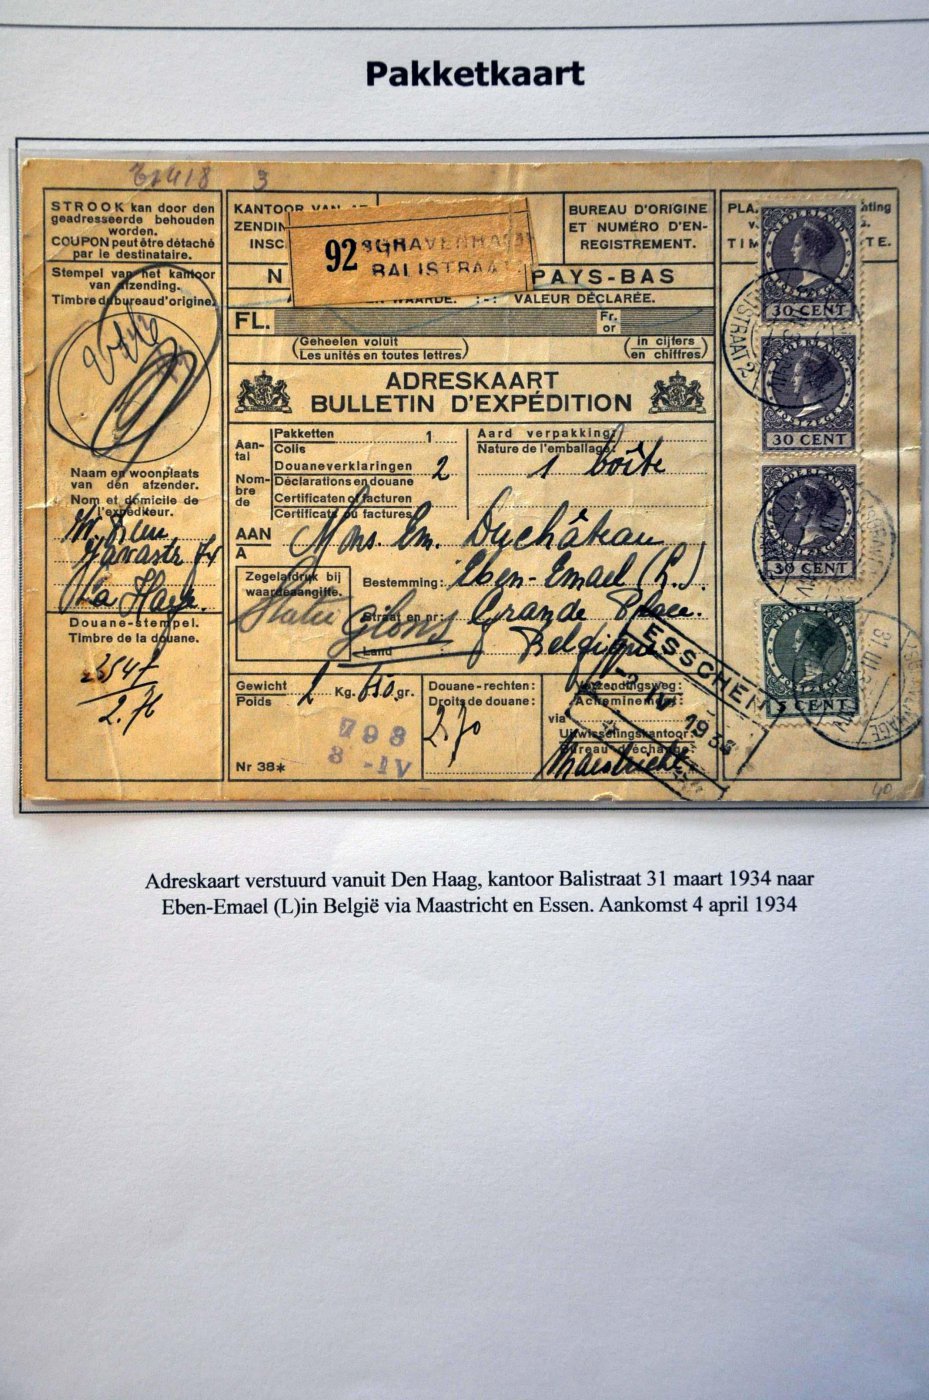 Pakketkaart
3
STROOK kan door den
geadresseerde behouden
worden.
COUPON peut être détaché
par le destinataire.
Stempel van het kantoor
van afzending.
Timbre du bureau d'origine.
Naam en woonplaats
van den afzender.
Nom et domicile de
l'expéditeur.
La Haye.
Douane-stempel.
Timbre de la douane.
2.76
KANTOOR VAN
ZENDIN
INSC
92
'SGRAVENHAGE
BALISTRAAT
BUREAU D'ORIGINE
ET NUMÉRO D'EN-
REGISTREMENT.
N
PAYS-BAS
WAARDE. :-: VALEUR DÉCLARÉE.
FL.
Fr.
or
(Geheelen voluit
Les unités en toutes lettres)
(in cijfers
en chiffres)
ADRESKAART
BULLETIN D'EXPÉDITION
Aan-
tal
Nom-
bre
de
Pakketten 1
Colis
Douaneverklaringen 2
Déclarations en douane
Certificaten of facturen
Certificats ou factures
Aard verpakking:
Nature de l'emballage:
1 boîte
AAN
A
Mons. Em. Duchâteau
Zegelafdruk bij
waardeaangifte.
Bestemming: Eben-Emael (L.)
Straat en nr: Grande Place.
Land Belgique
Glons
Gewicht
Poids
2 Kg. 650 gr.
Douane-rechten:
Droits de douane:
Verzendingsweg:
Acheminement:
via
Uitwisselingskantoor:
Bureau d'échange:
Maestricht
798
8 -IV
Nr 38*
ESSCHEN
IV 193
PLA
TIM
TE.
NEDERLAND
POSTZEGEL
30 CENT
NEDERLAND
POSTZEGEL
30 CENT
NEDERLAND
POSTZEGEL
30 CENT
NEDERLAND
POSTZEGEL
5 CENT
31 III
40
Adreskaart verstuurd vanuit Den Haag, kantoor Balistraat 31 maart 1934 naar
Eben-Emael (L)in België via Maastricht en Essen. Aankomst 4 april 1934